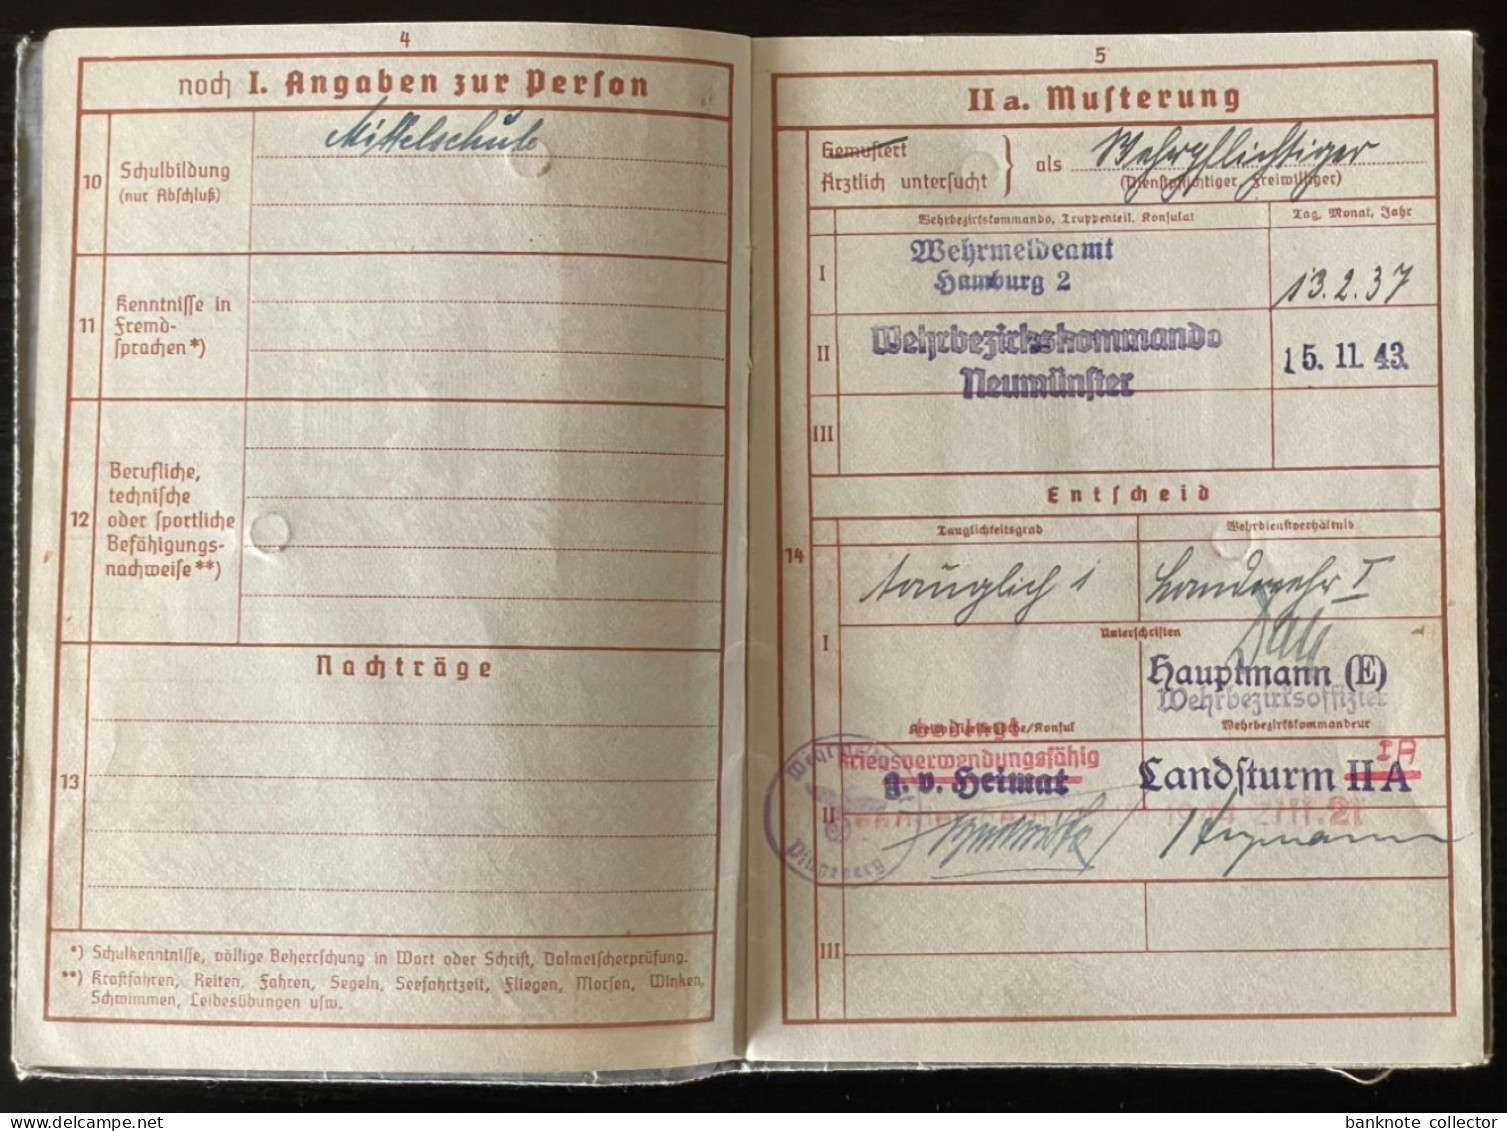 4
noch I. Angaben zur Person
10
Schulbildung
(nur Abschluß)
Mittelschule
11
Kenntnisse in
Fremd-
sprachen *)
12
Berufliche,
technische
oder sportliche
Befähigungs-
nachweise **)
Nachträge
13
*) Schulkenntnisse, völlige Beherrschung in Wort oder Schrift, Dolmetscherprüfung.
**) Kraftfahren, Reiten, Fahren, Segeln, Seefahrtzeit, Fliegen, Morsen, Winken,
Schwimmen, Leibesübungen usw.
5
IIa. Musterung
Gemustert
Ärztlich untersucht
als Wehrpflichtiger
(Dienstpflichtiger, Freiwilliger)
Wehrbezirkskommando, Truppenteil, Konsulat
Tag, Monat, Jahr
I
Wehrmeldeamt
Hamburg 2
13.2.37
II
Wehrbezirkskommando
Neumünster
15. 11. 43.
III
Entscheid
14
Tauglichkeitsgrad
Wehrdienstverhältnis
I
tauglich 1
Landwehr I
Unterschriften
Hauptmann (E)
Wehrbezirksoffizier
Kreispolizeibehörde/Konsul
Wehrbezirkskommandeur
bedingt
kriegsverwendungsfähig
g. v. Heimat
Landsturm II A
I A
II
III